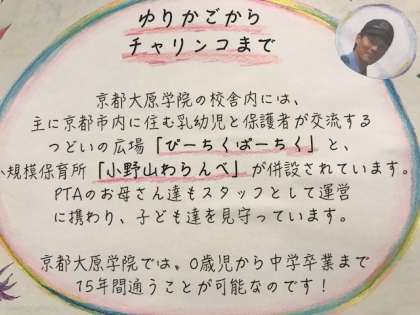 ゆりかごから
チャリンコまで
京都大原学院の校舎内には、
主に京都市内に住む乳幼児と保護者が交流する
つどいの広場「ぴーちくぱーちく」と、
小規模保育所「小野山わらんべ」が併設されています。
PTAのお母さん達もスタッフとして運営
に携わり、子ども達を見守っています。
京都大原学院では、0歳児から中学卒業まで
15年間通うことが可能なのです!